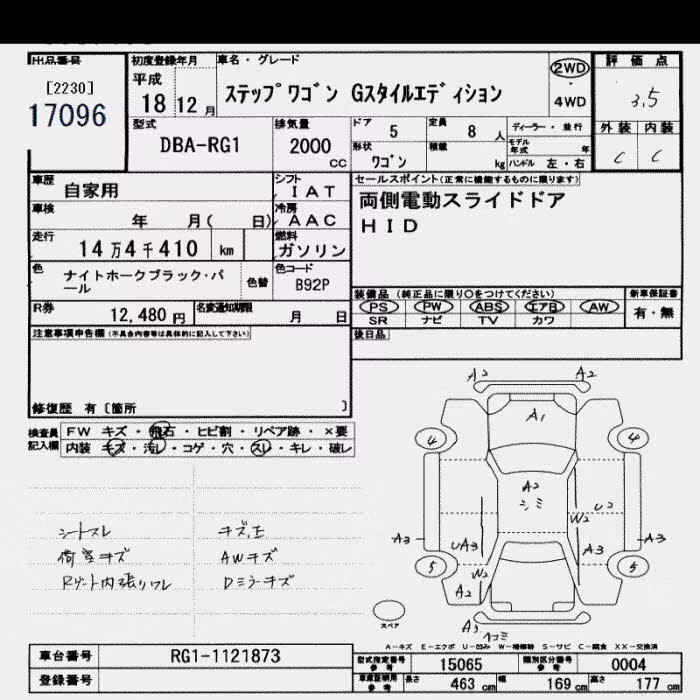 出品番号
[2230]
17096
初度登録年月
平成
18 12 月
車名・グレード
ステップワゴン Gスタイルエディション
2WD
・
4WD
評価点
3.5
外装 内装
C C
型式
DBA-RG1
排気量
2000
CC
ドア 5
定員 8 人
形状
ワゴン
積載 kg
ディーラー・並行
モデル年式 年
ハンドル 左・右
車歴 自家用
シフト
IAT
車検 年 月( 日)
冷房
AAC
走行 14万4千410 km
燃料
ガソリン
色 ナイトホークブラック・パール
色替
色コード
B92P
R券 12,480 円
名変通知期限 月 日
注意事項申告欄(不具合内容等は具体的に記入して下さい)
修復歴 有〔箇所 〕
セールスポイント(正常に機能するものに限ります)
両側電動スライドドア
HID
装備品(純正品に限り○をつけてください)
PS PW ABS エアB AW
SR ナビ TV カワ
新車保証書
有・無
後日品
検査員記入欄
FW キズ・飛石・ヒビ割・リペア跡・×要
内装 キズ・汚レ・コゲ・穴・スレ・キレ・破レ
シートスレ
荷室キズ
Rゲート内張りワレ
AWキズ
Dミラーキズ
A2 A2
A1
4 4
A2
シミ
U2
W2
A3 UA3 A3 A3
5 5
W2
A2
A3
スペア
A-キズ E-エクボ U-凹み W-補修跡 S-サビ C-腐食 XX-交換済
車台番号 RG1-1121873
登録番号
型式指定番号 参考 15065
類別区分番号 参考 0004
車庫証明用 参考
長さ 463 cm 幅 169 cm 高さ 177 cm